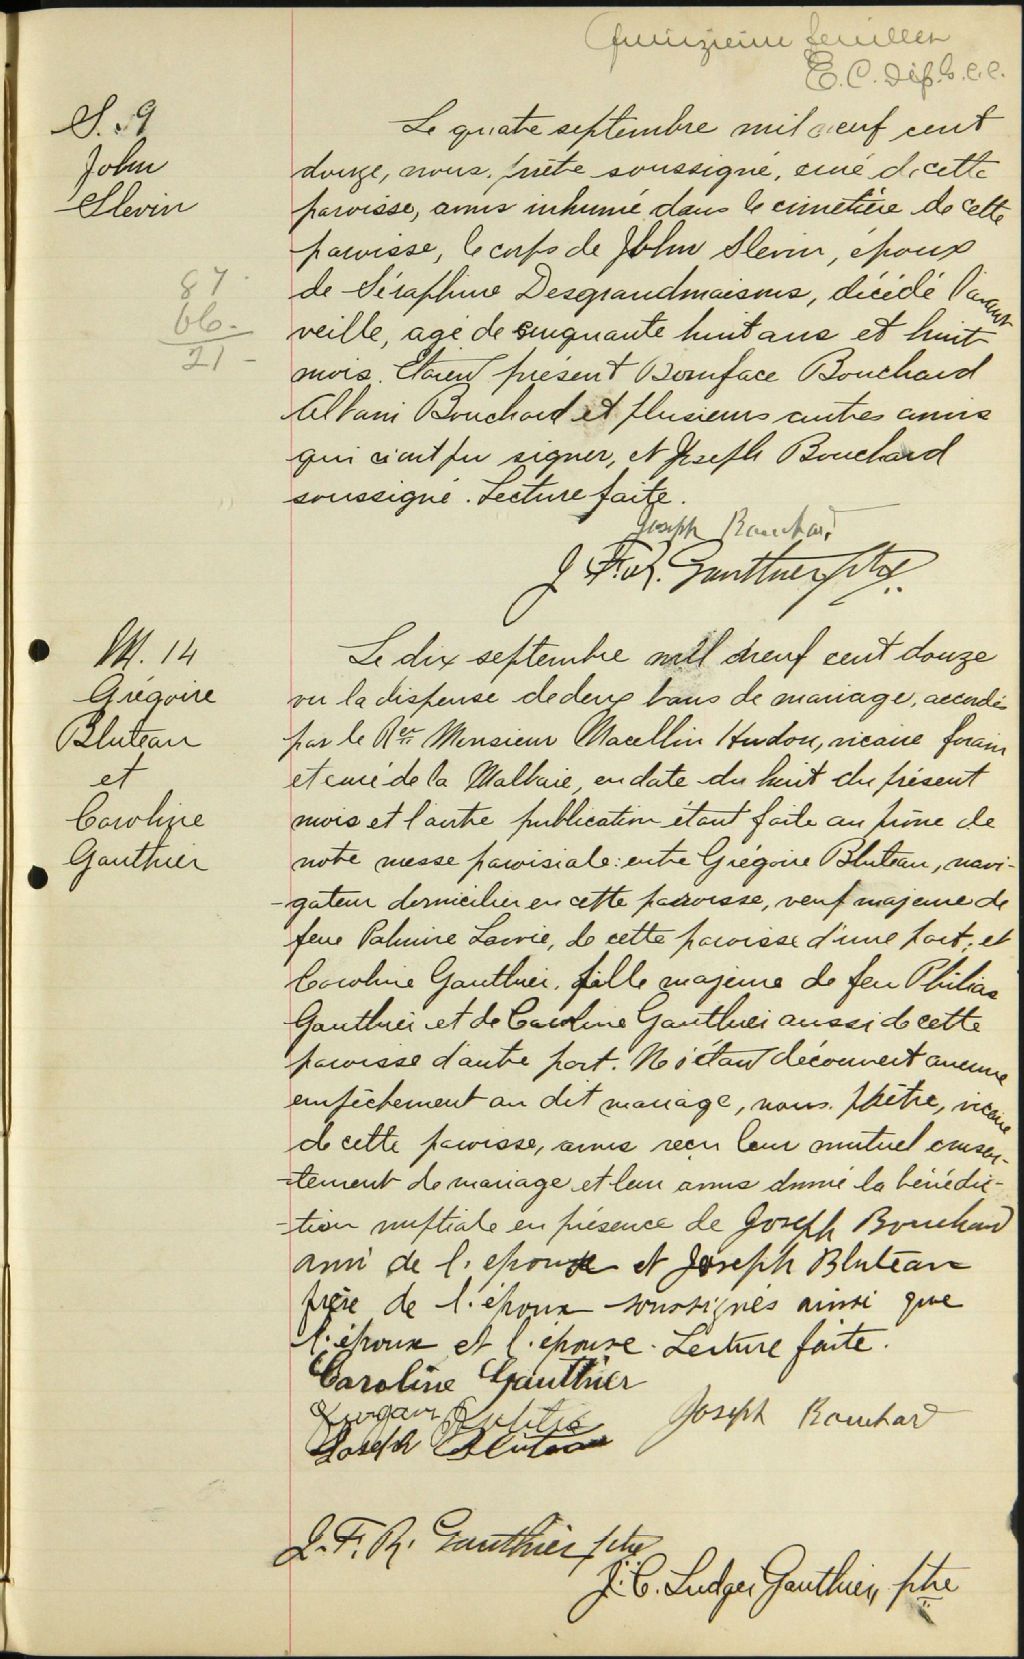 quinzième feuillet
E. C. Dép. G. C. C.
S. 9
John
Slevin
87
66
21
Le quatre septembre mil neuf cent
douze, nous, prêtre soussigné, curé de cette
paroisse, avons inhumé dans le cimetière de cette
paroisse, le corps de John Slevin, époux
de Séraphine Desgrandmaisons, décédé l'avant
veille, agé de cinquante huit ans et huit
mois. Etaient présent Boniface Bouchard
Albani Bouchard et plusieurs autres amis
qui n'ont pu signer, et Joseph Bouchard
soussigné. Lecture faite.
Joseph Bouchard
J. F. R. Gauthier ptre
M. 14
Grégoire
Bluteau
et
Caroline
Gauthier
Le dix septembre mil neuf cent douze
vu la dispense de deux bans de mariage, accordés
par le Rev Monsieur Macellin Hudon, vicaire forain
et curé de la Malbaie, en date du huit du présent
mois et l'autre publication étant faite au prône de
notre messe paroisiale: entre Grégoire Bluteau, navi-
-gateur domicilier en cette paroisse, veuf majeure de
feue Palmire Lavoie, de cette paroisse d'une part; et
Caroline Gauthier, fille majeure de feu Philias
Gauthier et de Caroline Gauthier aussi de cette
paroisse d'autre part. Ne s'étant découvert aucune
empêchement au dit mariage, nous, prêtre, vicaire
de cette paroisse, avons reçu leur mutuel consen-
-tement de mariage et leur avons donné la bénédic-
-tion nuptiale en présence de Joseph Bouchard
ami de l'époux et Joseph Bluteau
frère de l'époux soussignés ainsi que
l'époux et l'épouse. Lecture faite.
Caroline Gauthier
Joseph Bouchard
Joseph Bluteau
J. F. R. Gauthier ptre
J. C. Ludger Gauthier, ptre